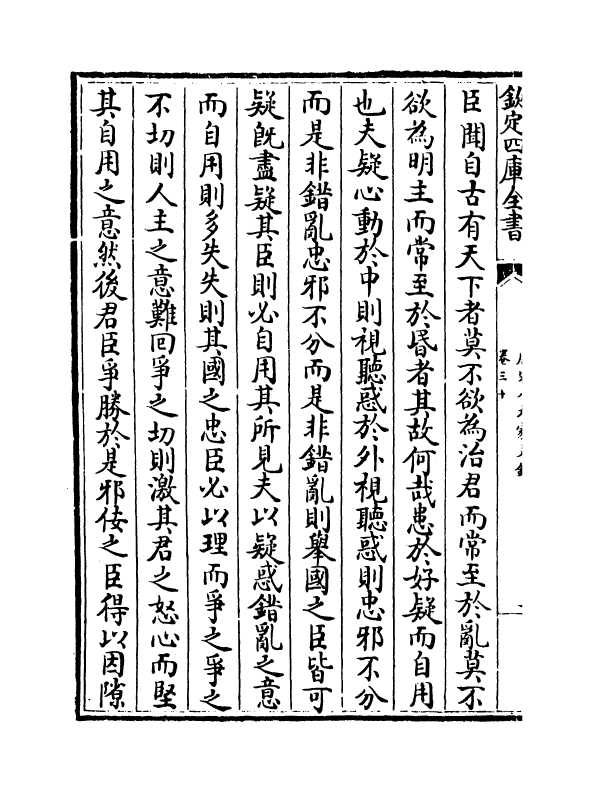 欽定四庫全書
卷三十
臣聞自古有天下者莫不欲為治君而常至於亂莫不
欲為明主而常至於昏者其故何哉患於好疑而自用
也夫疑心動於中則視聽惑於外視聽惑則忠邪不分
而是非錯亂忠邪不分而是非錯亂則舉國之臣皆可
疑旣盡疑其臣則必自用其所見夫以疑惑錯亂之意
而自用則多失失則其國之忠臣必以理而爭之爭之
不切則人主之意難囘爭之切則激其君之怒心而堅
其自用之意然後君臣爭勝於是邪佞之臣得以因隙